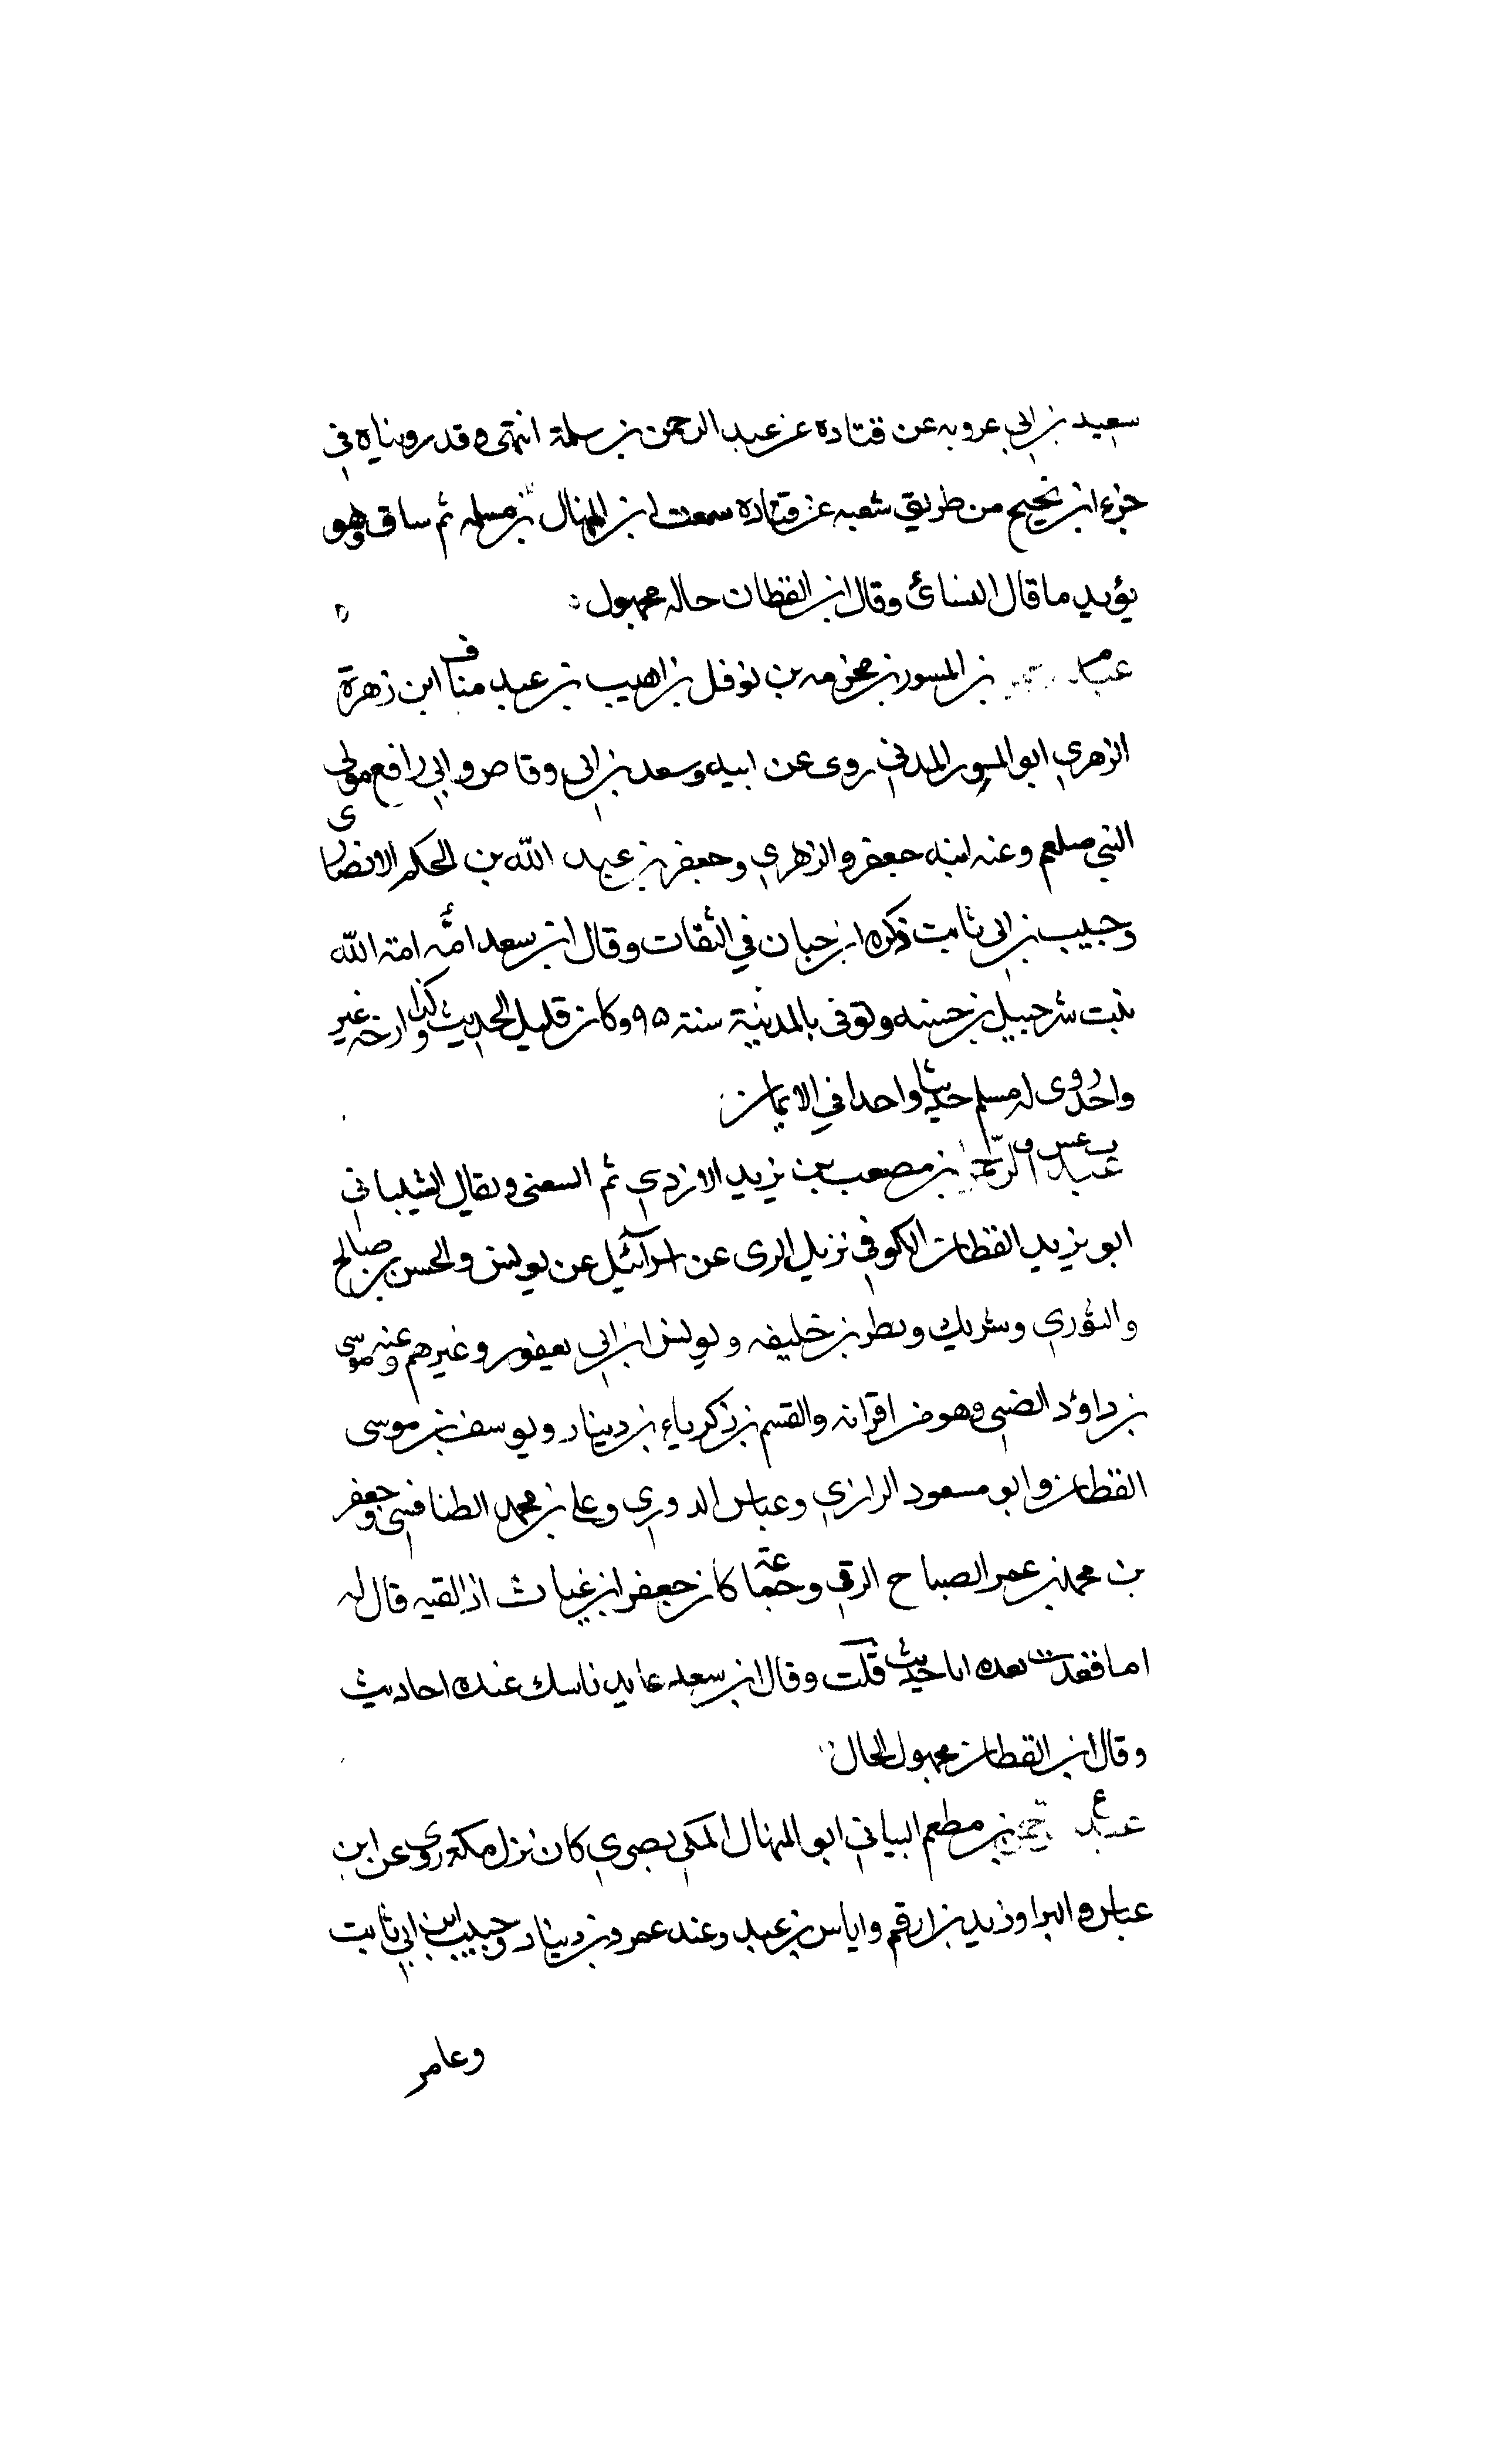 سعيد بن ابي عروبه عن قتاده عن عبد الرحمن بن سلمة انتهى وقد رويناه في
جزء ابن نجيح من طريق شعبه عن قتاده سمعت ابن المنهال بن مسلمه ثم ساق وهو
يؤيد ما قال النسائ وقال ابن القطان حاله مجهول
م عبد بن المسور بن مخرمه بن نوفل بن اهيب بن عبد مناف ابن زهرة
الزهري ابو المسور المدني روى عن ابيه وسعد بن ابي وقاص وابي رافع مولى
النبي صلعم وعنه ابنه جعفر والزهري وجعفر بن عبد الله بن الحكم الانصاري
وحبيب بن ابي ثابت ذكره ابن حبان في الثقات وقال ابن سعد امّه امة الله
بنت شرحبيل بن حسنه وتوفى بالمدنية سنة ٩٥ وكان قليل الحديث وكذا ارخه غير
واحد روى له مسلم حديثا واحدا في الايمان
عبد الرحمن بن مصعب بن يزيد الازدي ثم السعنى ويقال الشيباني
ابو يزيد القطان الكوفي نزيل الرى عن اسرآئيل عن يونس والحسن بن صالح
والثوري وشريك وفطر بن خليفه ويونس ابن ابي يعفور وغيرهم وعنه موسى
بن داؤد الضبي وهو من اقرانه والقسم بن زكرياء بن دينار ويوسف بن موسى
القطان وابو مسعود الرازي وعباس الدوري وعلى بن محمد الطنافسي وجعفر
بن محمد بن عمر الصباح الرقي وجماعة كان جعفر ابن غياث اذا لقيه قال له
اما فقدت بعده احديث قلت وقال ابن سعد عابد ناسك عنده احاديث
وقال ابن القطان مجهول الحال
ع عبد الرحمن بن مطعم البياني ابو المنهال المكي بصري كان نزل مكة روى عن ابن
عباس والبرا وزيد بن ارقم واياس بن عبد وعنه عمرو بن دينار وحبيب ابن ابي ثابت
وعامر